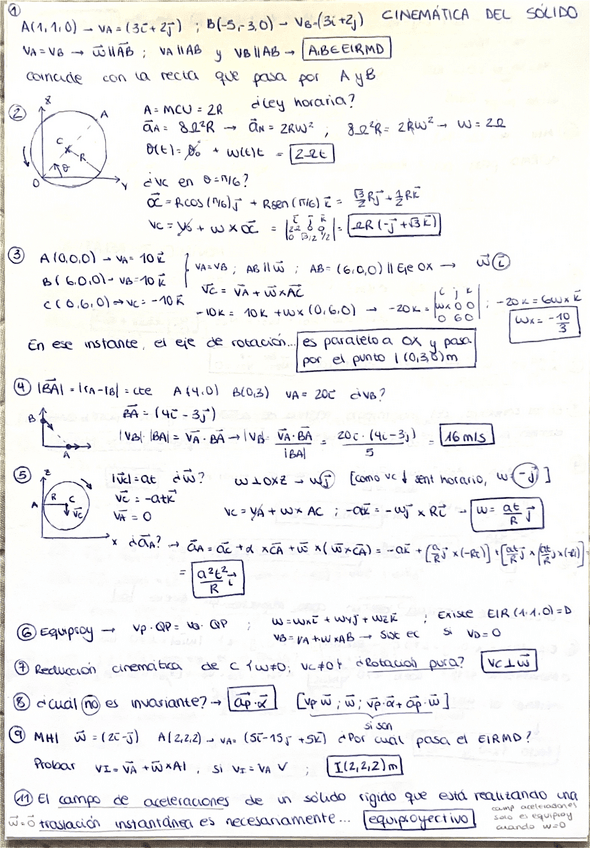 ① CINEMÁTICA DEL SÓLIDO
A(1,1,0) → VA = (3i+2j) ; B(-5,-3,0) → VB = (3i+2j)
VA = VB → w∥AB ; VA∥AB y VB∥AB → A,B∈EIRMD
Coincide con la recta que pasa por A y B
② Z A C R θ O Y
A = MCU = 2R ¿Ley horaria?
aA = 8Ω²R → aN = 2RW² ; 8Ω²R = 2RW² → W = 2Ω
θ(t) = θ0 + W(t)t = 2Ωt
¿VC en θ=π/6?
OC = Rcos(π/6)j + Rsen(π/6)k = √3/2 Rj + 1/2 Rk
VC = V0 + W × OC = = ΩR(-j+√3k)
③ A(0,0,0) → VA = 10k
B(6,0,0) → VB = 10k
C(0,6,0) → VC = -10k
VA = VB ; AB∥w ; AB = (6,0,0) ∥ Eje OX → w i
VC = VA + w × AC
-10k = 10k + wx(0,6,0) → -20k = | i j k wx 0 0 0 6 0 | ; -20k = 6wx k
wx = -10/3
En ese instante, el eje de rotación... es paralelo a OX y pasa
por el punto I(0,3,0)m
④ |BA| = |rA-rB| = cte A(4,0) B(0,3) VA = 20i ¿VB?
B A
BA = (4i-3j)
|VB|·|BA| = VA·BA → |VB| = VA·BA / |BA| = 20i·(4i-3j) / 5 = 16 m/s
⑤ Z A R C VC X
|VC| = at ¿w?
VC = -atk
VA = 0
W⊥OXZ → wj [como VC ↓ sent horario, w = -j]
VC = VA + W × AC ; -atk = -wj × Ri → w = at/R j
¿aA? → aA = aC + α × CA + w × (w × CA) = -ak + [a/R j × (-Ri)] + [at/R j × [at/R j × (-Ri)] =
= a²t²/R i
⑥ Equiproy → VP·QP = VQ·QP ; W = wxi + wyj + wzk ; Existe EIR(1,1,0) = D
VB = VA + W × AB → Sist ec si VD = 0
⑦ Reducción cinemática de C {w≠0; VC≠0} ¿Rotación pura? VC⊥w
⑧ ¿Cuál no es invariante? → aP·α [VP w ; w ; VP·α + aP·w]
si son
⑨ MHI w = (2i-j) A(2,2,2) → VA = (5i-15j+5k) ¿Por cual pasa el EIRMD?
Probar VI = VA + w × AI, si VI = VA ✓ ; I(2,2,2)m
⑪ El campo de aceleraciones de un sólido rígido que está realizando una
w=0 traslación instantánea es necesariamente... equiproyectivo
camp aceleraciones
solo es equiproy
cuando w=0